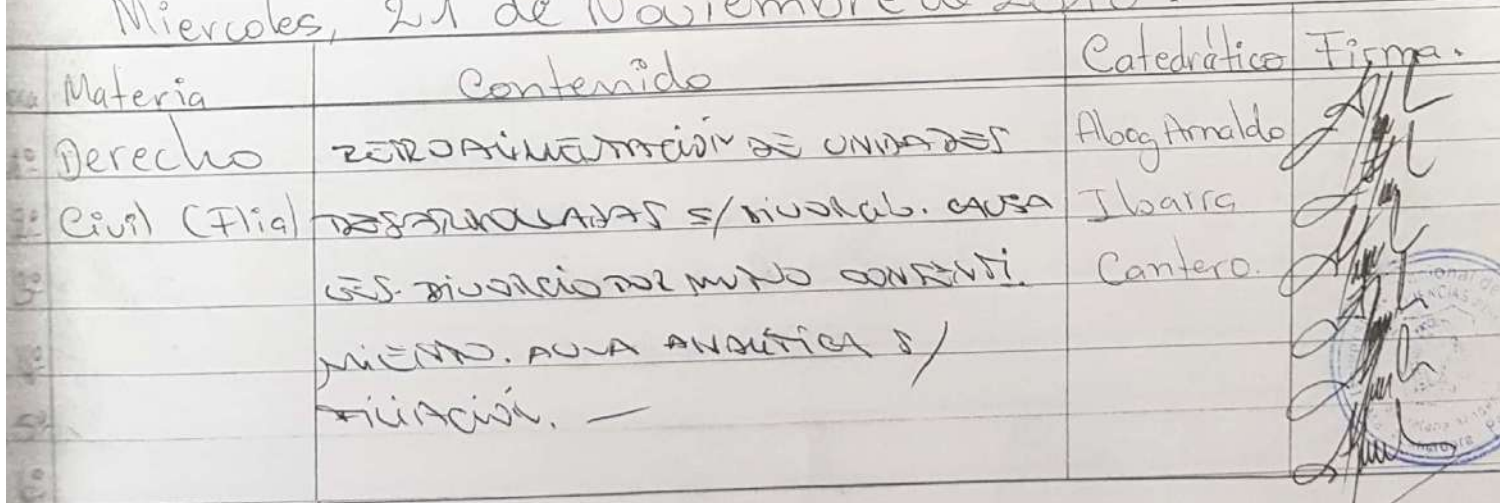 Miercoles, 21 de Noviembre de
Materia Contenido Catedrático Firma.
Derecho RETROALIMENTACIÓN DE UNIDADES Abog Arnaldo
Civil (Flia) DESARROLLADAS S/ DIVORCIO. CAUSA Ibarra
LES. DIVORCIO POR MUTUO CONSENTI. Cantero.
MIENTO. AULA ANALÍTICA S/
FILIACIÓN. —